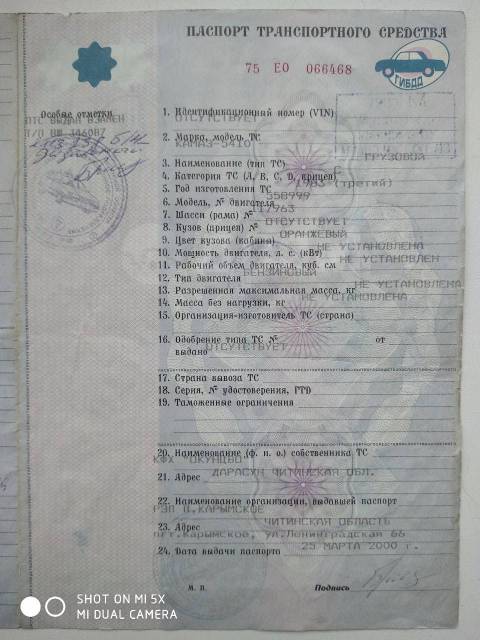 ПАСПОРТ ТРАНСПОРТНОГО СРЕДСТВА
75 ЕО 066468
ГИБДД
Особые отметки
ПТС ВЫДАН ВЗАМЕН
1. Идентификационный номер (VIN)
ОТСУТСТВУЕТ
2. Марка, модель ТС
КАМАЗ-5410
3. Наименование (тип ТС)
ГРУЗОВОЙ
4. Категория ТС (А, В, С, D, прицеп)
5. Год изготовления ТС
1983 (третий)
6. Модель, № двигателя
558999
7. Шасси (рама) №
117963
8. Кузов (прицеп) №
ОТСУТСТВУЕТ
9. Цвет кузова (кабины)
ОРАНЖЕВЫЙ
10. Мощность двигателя, л. с. (кВт)
НЕ УСТАНОВЛЕНА
11. Рабочий объем двигателя, куб. см
НЕ УСТАНОВЛЕН
12. Тип двигателя
БЕНЗИНОВЫЙ
13. Разрешенная максимальная масса, кг
НЕ УСТАНОВЛЕНА
14. Масса без нагрузки, кг
НЕ УСТАНОВЛЕНА
15. Организация-изготовитель ТС (страна)
16. Одобрение типа ТС № от
ОТСУТСТВУЕТ
выдано
17. Страна вывоза ТС
18. Серия, № удостоверения, ГТД
19. Таможенные ограничения
20. Наименование (ф. и. о.) собственника ТС
КФХ "ОКУНЦЕВО"
21. Адрес
ДАРАСУН ЧИТИНСКАЯ ОБЛ.
22. Наименование организации, выдавшей паспорт
РЭП П.КАРЫМСКОЕ
23. Адрес
ЧИТИНСКАЯ ОБЛАСТЬ
пгт.Карымское, ул.Ленинградская 66
24. Дата выдачи паспорта
25 МАРТА 2000 г.
М. П. Подпись
SHOT ON MI 5X
MI DUAL CAMERA